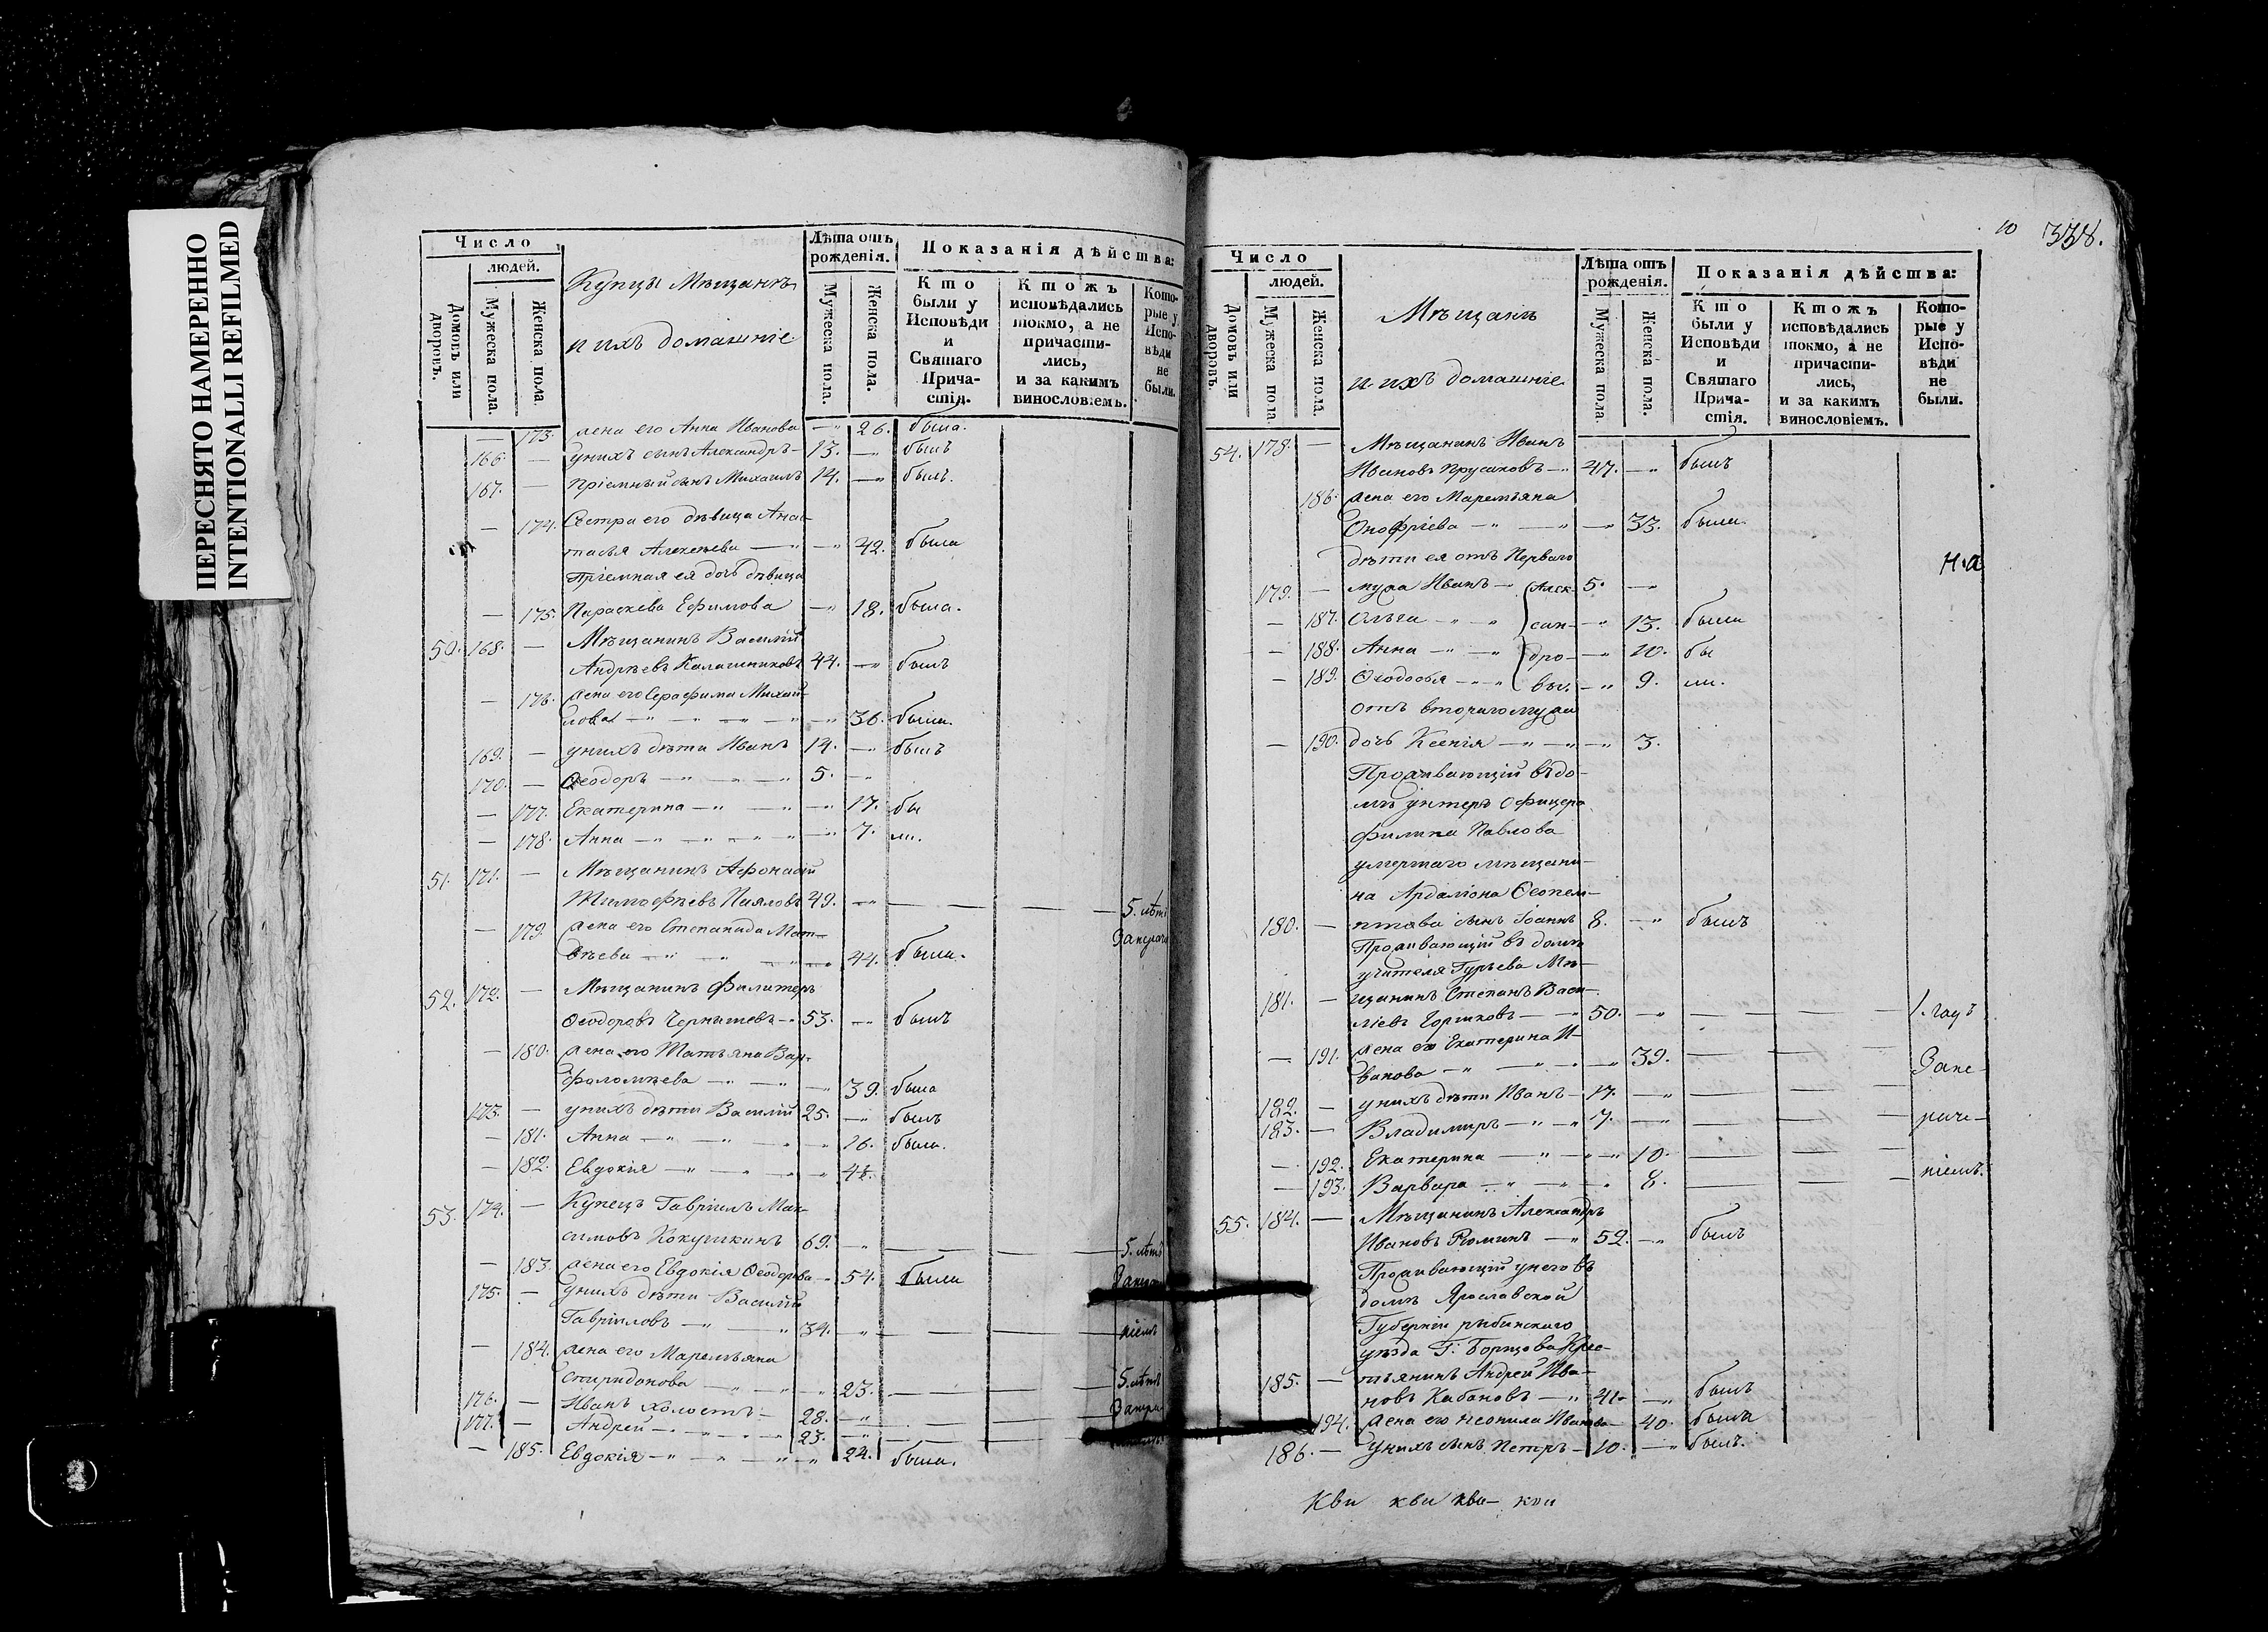 ПЕРЕСНЯТО НАМЕРЕННО
INTENTIONALLI REFILMED
Число
людей.
Домовъ или дворовъ.
Мужеска пола.
Женска пола.
Купцы Мѣщанѣ
и ихъ домашніе
Лѣта отъ рожденія.
Мужеска пола.
Женска пола.
Показанія дѣйства:
Кто были у Исповѣди и Святаго Причастія.
Ктожъ исповѣдались токмо, а не причастились, и за какимъ винословіемъ.
Которые у Исповѣди не были.
— 173. жена его Анна Иванова — 26. была.
166. — у нихъ сынъ Александръ — 13. — былъ
167. — пріемный сынъ Михаилъ 14. — былъ.
— 174. Сестра его дѣвица Анас-
тасья Алексѣева — 42. была
Пріемная ея дочь дѣвица
— 175. Параскева Ефимова — 18. была.
50. 168. — Мѣщанинъ Василій
Андрѣевъ Калашниковъ 44. — былъ
— 176. жена его Серафима Михай-
лова — 36. была.
169. — у нихъ дѣти Иванъ 14. — былъ
170. — Ѳеодоръ — 5. —
— 177. Екатерина — 17. бы
— 178. Анна — 7. ли.
51. 171. — Мѣщанинъ Афонасій
Тимофѣевъ 49. — 5. лѣтъ
— 179. жена его Степанида Мат-
вѣева — 44. была.
52. 172. — Мѣщанинъ Филитеръ
Ѳеодоровъ Чернышевъ — 53. — былъ
— 180. жена его Татьяна Вар-
фоломѣева — 39. была
173. — у нихъ дѣти Василій 25. — былъ
— 181. Анна — 16. была.
— 182. Евдокія —
53. 174. — Купецъ Гавріилъ Мак-
симовъ Кокушкинъ 69. — 5. лѣтъ
— 183. жена его Евдокія Ѳеодорова — 54. была
175. — у нихъ дѣти Василій
Гавріиловъ — 34. — ніемъ
— 184. жена его Маремьяна
Спиридонова — 23. — 5. лѣтъ
176. — Иванъ холостъ — 28. —
177. — Андрей — 23. —
— 185. Евдокія — 24. была.
10 338.
Число
людей.
Домовъ или дворовъ.
Мужеска пола.
Женска пола.
Мѣщанѣ
и ихъ домашніе
Лѣта отъ рожденія.
Мужеска пола.
Женска пола.
Показанія дѣйства:
Кто были у Исповѣди и Святаго Причастія.
Ктожъ исповѣдались токмо, а не причастились, и за какимъ винословіемъ.
Которые у Исповѣди не были.
54. 178. — Мѣщанинъ Иванъ
Ивановъ Прусаковъ — 47. — былъ
186. жена его Маремьяна
Онофріева — 33. была.
дѣти ея отъ Перваго
179. — мужа Иванъ — Алек- 5. —
— 187. Ольга — сан- — 13. были
— 188. Анна — дро- — 10. бы
— 189. Ѳеодосья — вы. — 9. ли.
отъ втораго мужа
— 190. дочь Ксенія — 3.
Проживающій въ до-
мѣ унтеръ офицера
Филипа Павлова
умершаго мѣщани-
на Ардаліона Ѳеопем-
180. — птова сынъ Іоаннъ 8. — былъ
Проживающій въ домѣ
учителя Гурьева Мѣ-
181. — щанинъ Степанъ Васи-
ліевъ Горшковъ — 50. — 1. годъ
— 191. жена его Екатерина И-
ванова — 39. — Зане-
182. — у нихъ дѣти Иванъ — 17. —
183. — Владимиръ — 7. — раче-
— 192. Екатерина — 10. —
— 193. Варвара — 8. — ніемъ.
55. 184. — Мѣщанинъ Александръ
Ивановъ Рюминъ — 52. — былъ
Проживающій у него въ
домѣ Ярославской
Губерніи рыбинскаго
уѣзда Г: Борщова Крес-
185. — тьянинъ Андрей Ива-
новъ Кабановъ — 41. — былъ
194. жена его Неонила Иванова — 40. была
186. — у нихъ сынъ Петръ — 10. — былъ.